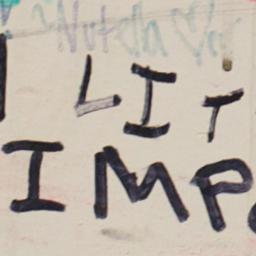 Nutella
LIT
IMP